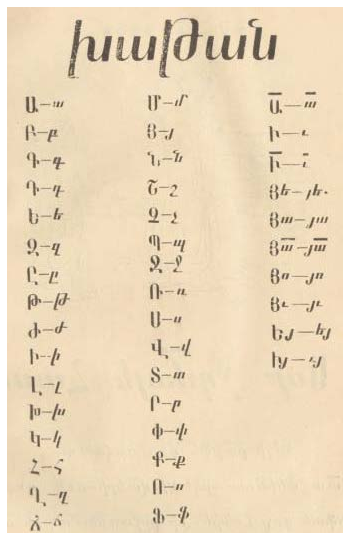 Ա—ա
Բ—բ
Գ—գ
Դ—դ
Ե—ե
Զ—զ
Ը—ը
Թ—թ
Ժ—ժ
Ի—ի
Լ—լ
Խ—խ
Կ—կ
Հ—հ
Ղ—ղ
Ճ—ճ
Մ—մ
Յ—յ
Ն—ն
Շ—շ
Չ—չ
Պ—պ
Ջ—ջ
Ռ—ռ
Ս—ս
Վ—վ
Տ—տ
Ր—ր
Փ—փ
Ք—ք
Ո—ո
Ֆ—ֆ
Ա̅—ա̅
Ւ—ւ
Ւ̅—ւ̅
Յե—յե.
Յա—յա
Յա̅—յա̅
Յո—յո
Յւ—յւ
Եյ—եյ